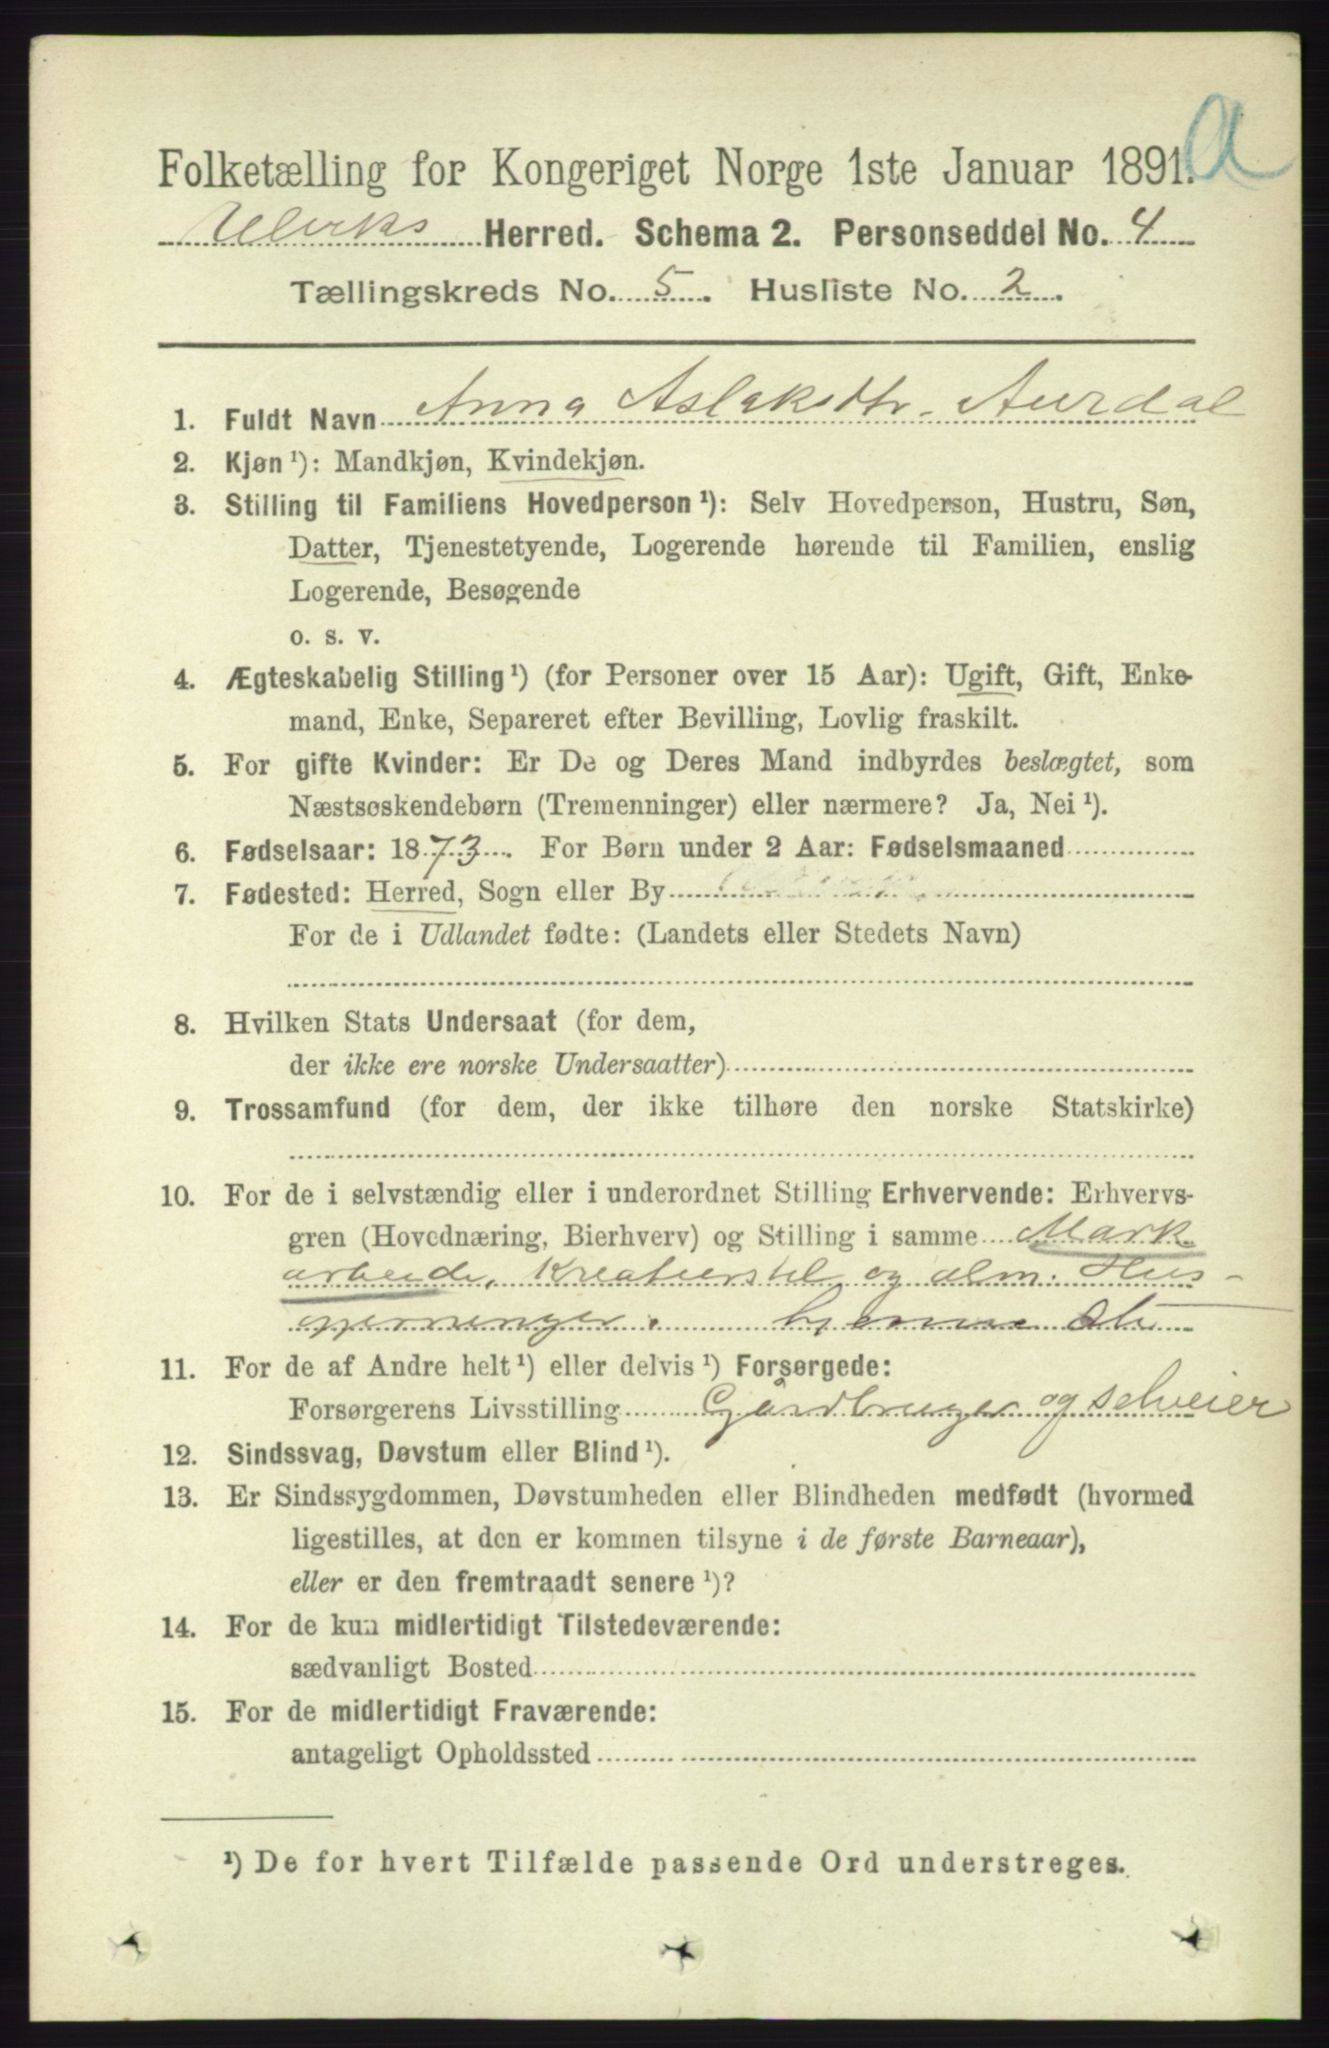 a
Folketælling for Kongeriget Norge 1ste Januar 1891.
Herred. Schema 2. Personseddel No. 4
Tællingskreds No. 5. Husliste No. 2.
1. Fuldt Navn Anna Aslaksdtr. Aurdal
2. Kjøn ¹): Mandkjøn, Kvindekjøn.
3. Stilling til Familiens Hovedperson ¹): Selv Hovedperson, Hustru, Søn,
Datter, Tjenestetyende, Logerende hørende til Familien, enslig
Logerende, Besøgende
o. s. v.
4. Ægteskabelig Stilling ¹) (for Personer over 15 Aar): Ugift, Gift, Enke-
mand, Enke, Separeret efter Bevilling, Lovlig fraskilt.
5. For gifte Kvinder: Er De og Deres Mand indbyrdes beslægtet, som
Næstsøskendebørn (Tremenninger) eller nærmere? Ja, Nei ¹).
6. Fødselsaar: 1873. For Børn under 2 Aar: Fødselsmaaned
7. Fødested: Herred, Sogn eller By
For de i Udlandet fødte: (Landets eller Stedets Navn)
8. Hvilken Stats Undersaat (for dem,
der ikke ere norske Undersaatter)
9. Trossamfund (for dem, der ikke tilhøre den norske Statskirke)
10. For de i selvstændig eller i underordnet Stilling Erhvervende: Erhvervs-
gren (Hovednæring, Bierhverv) og Stilling i samme Mark
arbeide, Kreaturstel og alm. Hus-
gjerninger. hjemme
11. For de af Andre helt ¹) eller delvis ¹) Forsørgede:
Forsørgerens Livsstilling Gårdbruger og selveier
12. Sindssvag, Døvstum eller Blind ¹).
13. Er Sindssygdommen, Døvstumheden eller Blindheden medfødt (hvormed
ligestilles, at den er kommen tilsyne i de første Barneaar),
eller er den fremtraadt senere ¹)?
14. For de kun midlertidigt Tilstedeværende:
sædvanligt Bosted
15. For de midlertidigt Fraværende:
antageligt Opholdssted
¹) De for hvert Tilfælde passende Ord understreges.